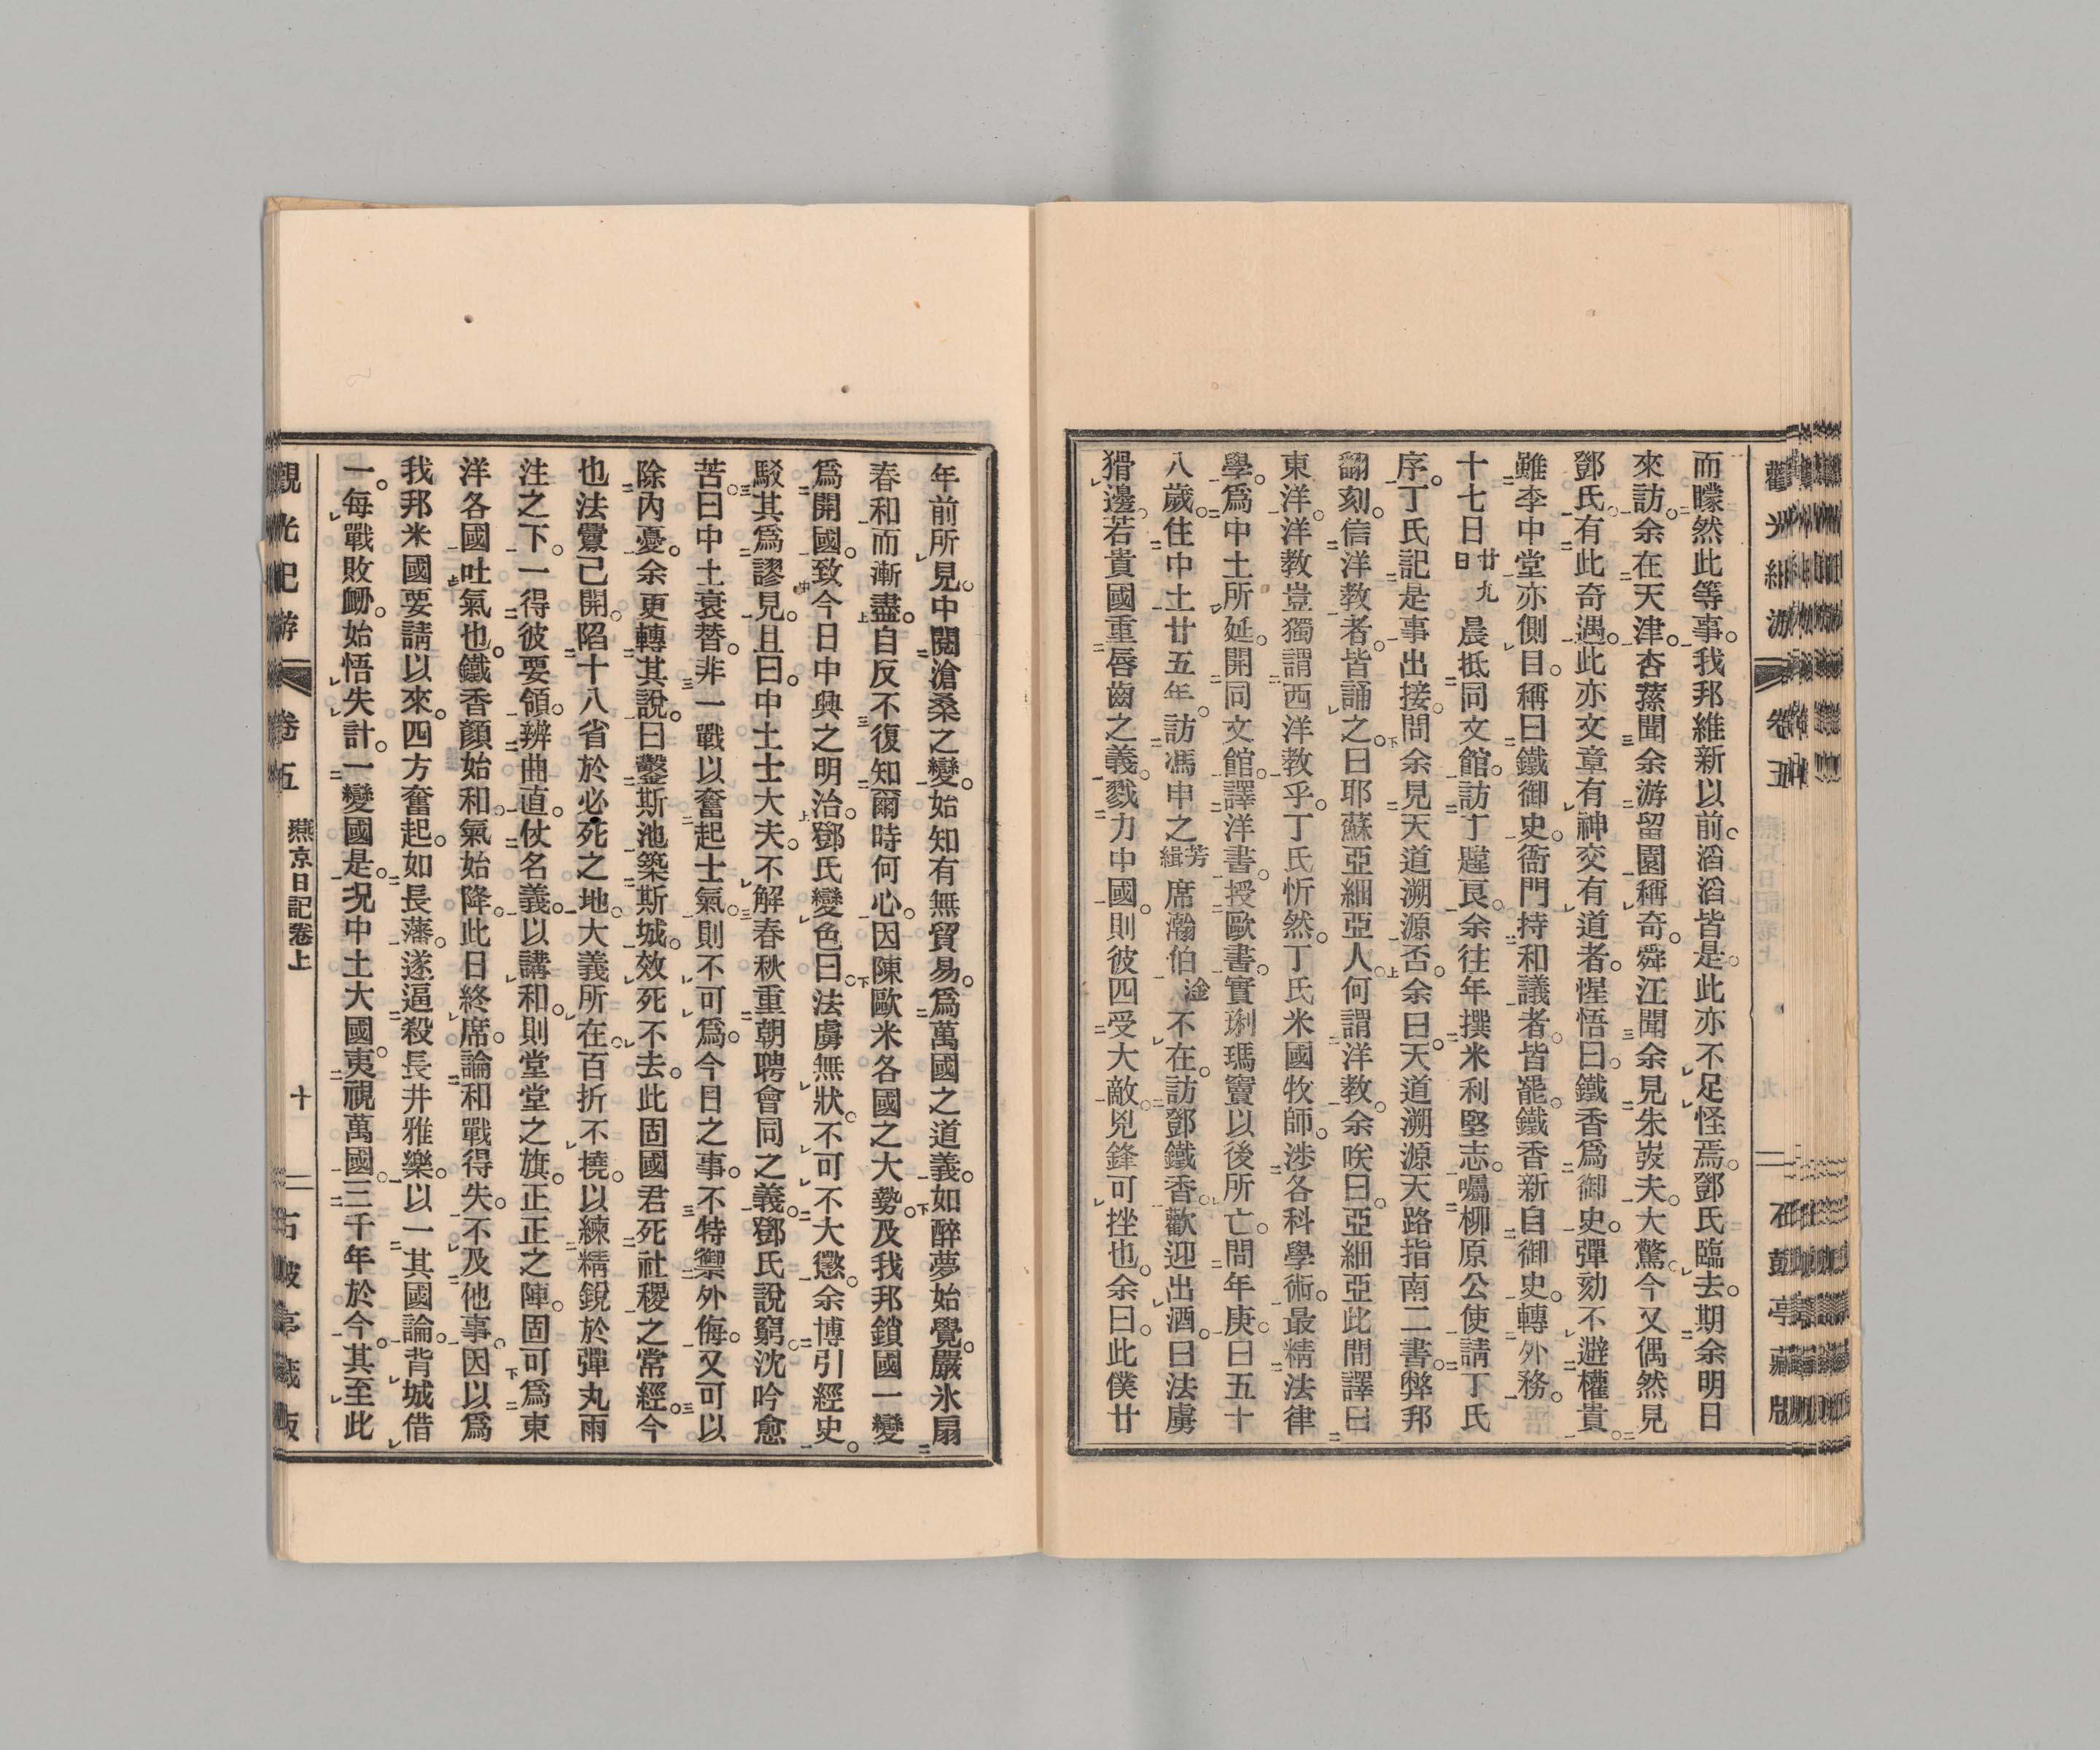 觀光紀游 卷五 石鼓亭藏版
而矇然此等事。我邦維新以前。滔滔皆是。此亦不足怪焉。鄧氏臨去。期余明日
來訪。余在天津。杏蓀聞余游留園稱奇。舜江聞余見朱炭夫。大驚今又偶然見
鄧氏。有此奇遇。此亦文章有神交有道者。惺悟曰。鐵香爲御史。彈劾不避權貴。
雖李中堂亦側目。稱曰鐵御史。衙門持和議者。皆罷。鐵香新自御史。轉外務。
十七日 廿九日 晨抵同文館。訪丁韙良。余往年撰米利堅志。囑柳原公使請丁氏
序。丁氏記是事出接。問余見天道溯源否。余曰。天道溯源天路指南二書。弊邦
翻刻。信洋教者。皆誦之。曰耶蘇亞細亞人。何謂洋教。余唉曰。亞細亞此間譯曰
東洋。洋教豈獨謂西洋教乎。丁氏忻然。丁氏米國牧師。涉各科學術。最精法律
學。爲中土所延。開同文館。譯洋書。授歐書。實琍瑪竇以後所亡。問年庚。曰五十
八歲。住中土廿五年。訪馮申之 芳緝 席瀚伯 淦 不在。訪鄧鐵香。歡迎出酒。曰法虜
猾邊。若貴國重唇齒之義。戮力中國。則彼四受大敵。兇鋒可挫也。余曰。此僕廿
年前所見。中閱滄桑之變。始知有無貿易。爲萬國之道義。如醉夢始覺。嚴氷扇
春和而漸盡。自反不復知爾時何心。因陳歐米各國之大勢。及我邦鎖國一變
爲開國。致今日中興之明治。鄧氏變色曰。法虜無狀。不可不大懲。余博引經史。
駁其爲謬見。且曰。中土士大夫。不解春秋重朝聘會同之義。鄧氏說窮。沈吟愈
苦。曰中土衰替。非一戰以奮起士氣。則不可爲。今日之事。不特禦外侮。又可以
除內憂。余更轉其說。曰鑿斯池築斯城。效死不去。此固國君死社稷之常經。今
也法釁已開。陷十八省於必死之地。大義所在。百折不撓。以練精銳於彈丸雨
注之下。一得彼要領。辨曲直。仗名義。以講和。則堂堂之旗。正正之陣。固可爲東
洋各國吐氣也。鐵香顏始和。氣始降。此日終席。論和戰得失。不及他事。因以爲
我邦米國要請以來。四方奮起。如長藩。遂逼殺長井雅樂。以一其國論。背城借
一。每戰敗衂。始悟失計。一變國是。況中土大國。夷視萬國。三千年於今。其至此
觀光紀游 卷五 燕京日記卷上 十 石鼓亭藏版